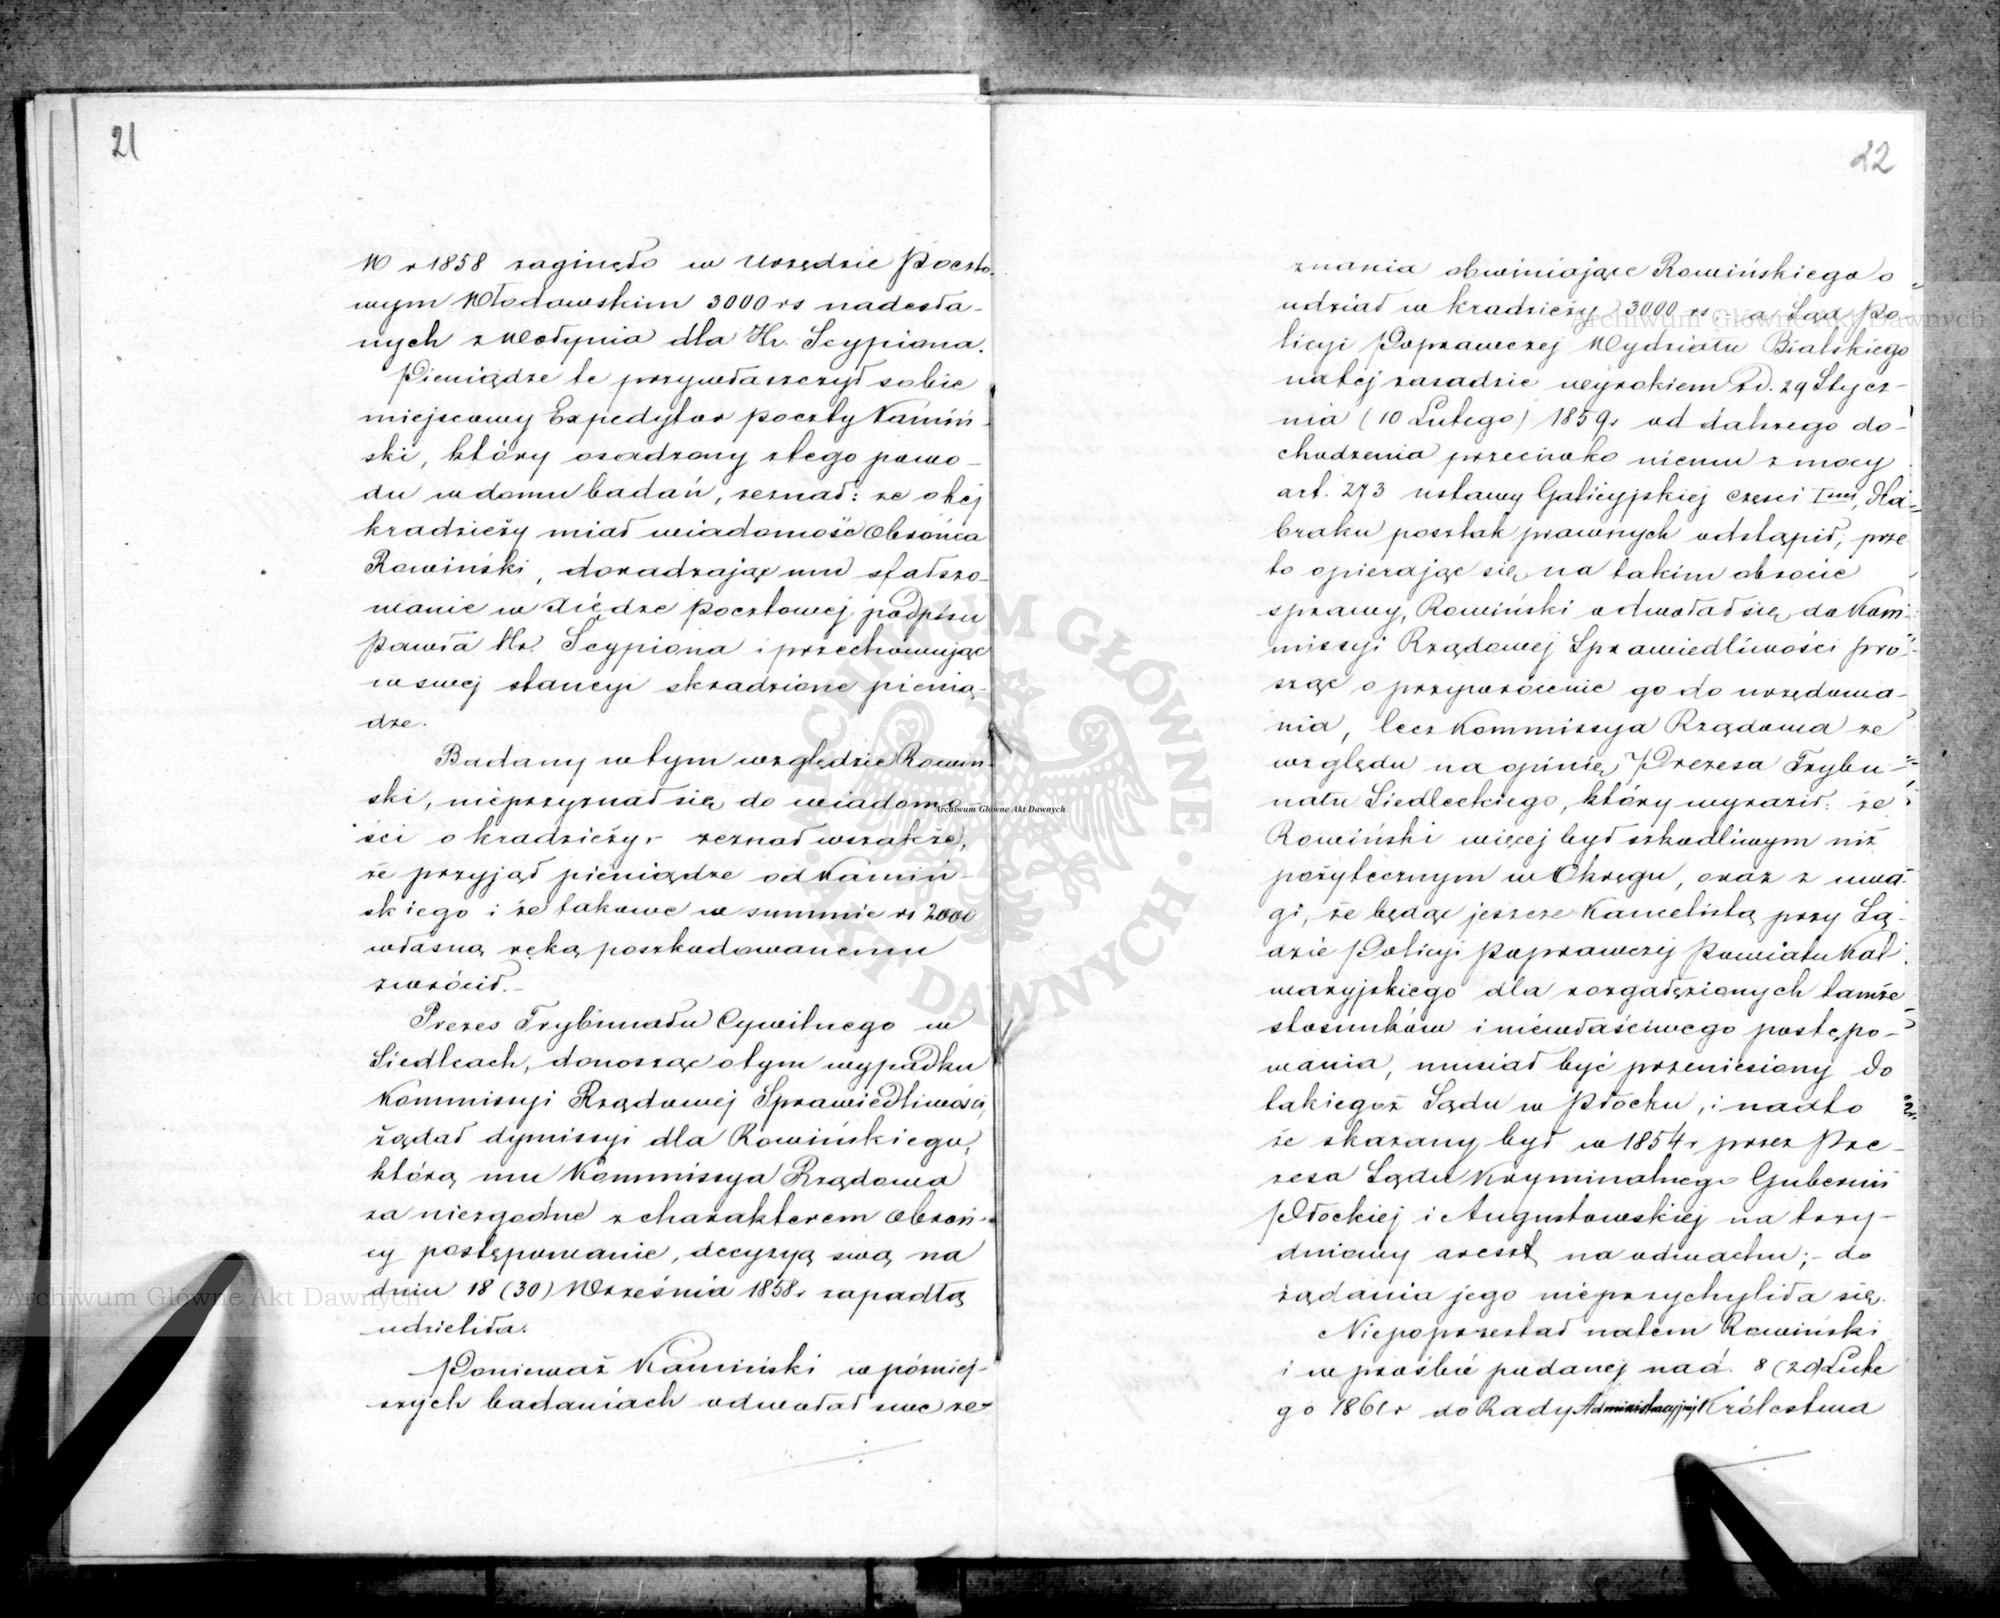 21
W r 1858 zaginęło w Urzędzie Poczto-
wym Włodawskim 3000 rs nadesła-
nych z Wołynia dla Hr. Scypiona.
Pieniądze te przywłaszczył sobie
miejscowy Expedytor poczty Kamiń-
ski, który osadzony z tego powo-
du w domu badań, zeznał: że o tej
kradzieży miał wiadomość Obrońca
Rowiński, doradzając mu sfałszo-
wanie w xiędze pocztowej podpisu
Pawła Hr. Scypiona i przechowując
w swej stancyi skradzione pienią-
dze.
Badany w tym względzie Rowiń-
ski, nieprzyznał się do wiadomo-
ści o kradzieży, zeznał wszakże,
że przyjął pieniądze od Kamiń-
skiego i że takowe w summie rs 2000
własną ręką poszkodowanemu
zwrócił.-
Prezes Trybunału Cywilnego w
Siedlcach, donosząc o tym wypadku
Kommissyi Rządowej Sprawiedliwości,
żądał dymissyi dla Rowińskiego,
którą mu Kommissya Rządowa
za niezgodne z charakterem Obroń-
cy postępowanie, decyzyą swą na
dniu 18 (30) Września 1858 r zapadłą
udzieliła.
Ponieważ Kamiński w później-
szych badaniach odwołał swe ze-
22
znania obwiniające Rowińskiego o
udział w kradzieży 3000 rs - a Sąd Po-
licyi Poprawczej Wydziału Bialskiego
na tej zasadzie wyrokiem z d. 29 Stycz-
nia (10 Lutego) 1859 r od dalszego do-
chodzenia przeciwko niemu z mocy
art. 273 ustawy Galicyjskiej części I, dla
braku poszlak prawnych odstąpił, prze
to opierając się na takim obrocie
sprawy, Rowiński odwołał się do Kom-
missyi Rządowej Sprawiedliwości pro-
sząc o przywrócenie go do urzędowa-
nia, lecz Kommissya Rządowa ze
względu na opinię Prezesa Trybu-
nału Siedleckiego, który wyraził: że
Rowiński więcej był szkodliwym niż
pożytecznym w Okręgu, oraz z uwa-
gi, że będąc jeszcze Kancelistą przy Są-
dzie Policyi Poprawczej Powiatu Kal-
waryjskiego dla rozgałęzionych tamże
stosunków i niewłaściwego postępo-
wania, musiał być przeniesiony do
takiegoż Sądu w Płocku, i nadto
że skazany był w 1854 r przez Pre-
zesa Sądu Kryminalnego Gubernii
Płockiej i Augustowskiej na trzy-
dniowy areszt na odwachu;- do
żądania jego nieprzychyliła się.
Niepoprzestał na tem Rowiński
i w prośbie podanej na d. 8 (20) Lute
go 1861 r do Rady Administracyjnej Królestwa
Archiwum Główne Akt Dawnych
Archiwum Główne Akt Dawnych
Archiwum Główne Akt Dawnych
ARCHIWUM GŁÓWNE · AKT DAWNYCH ·